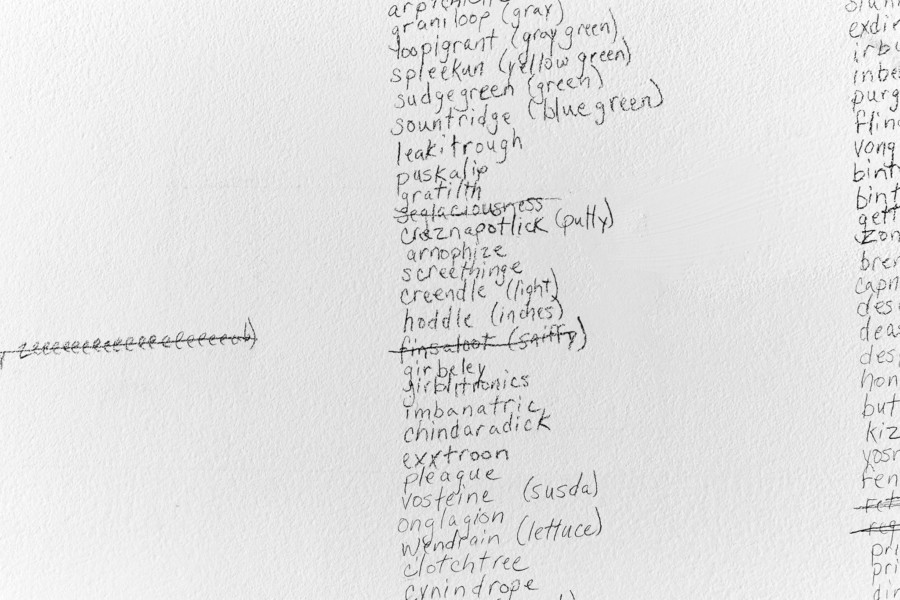 zeeeeeeeeeeeeeeeeub)
graniloop (gray)
loopigrant (gray green)
spleekun (yellow green)
sudgegreen (green)
sountridge (blue green)
leakitrough
puskalip
gratilth
seglaciousness
craznapotlick (putty)
arnophize
screethinge
creendle (light)
hoddle (inches)
finsaloot (sniffy)
girbeley
girblitronics
imbanatric
chindaradick
exxtroon
pleague
vosteine (susda)
onglagion
wendrain (lettuce)
clotchtree
cynindrope
exdie
irbu
inbe
purg
flin
vong
bint
bint
gett
zon
bren
capn
des
deas
des
hon
but
kiz
yosr
fen
pri
pri
dir